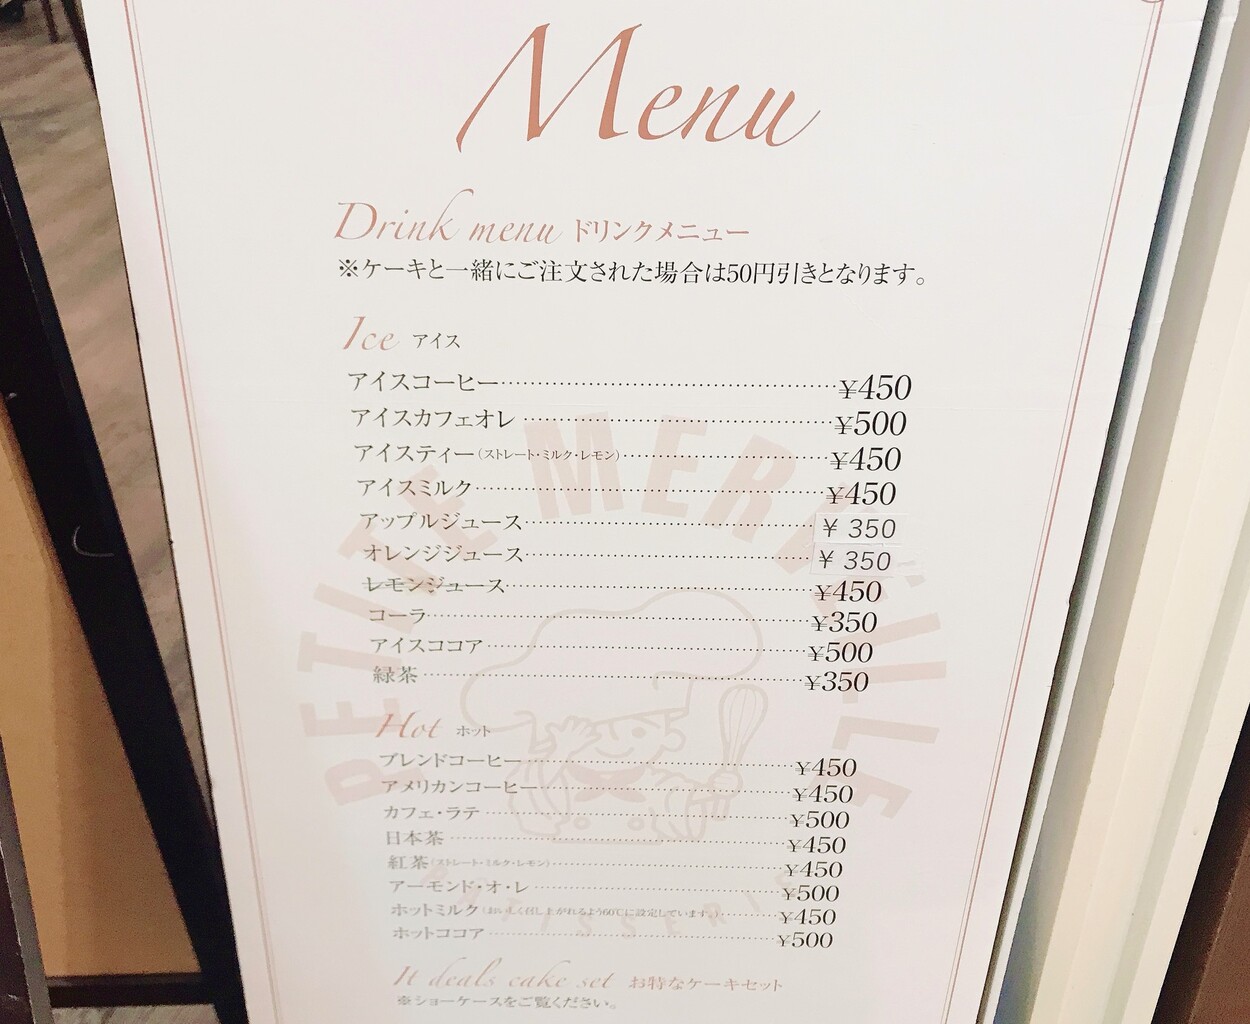 Menu
Drink menu ドリンクメニュー
※ケーキと一緒にご注文された場合は50円引きとなります。
Ice アイス
アイスコーヒー ¥450
アイスカフェオレ ¥500
アイスティー(ストレート・ミルク・レモン) ¥450
アイスミルク ¥450
アップルジュース ¥ 350
オレンジジュース ¥ 350
レモンジュース ¥450
コーラ ¥350
アイスココア ¥500
緑茶 ¥350
Hot ホット
ブレンドコーヒー ¥450
アメリカンコーヒー ¥450
カフェ・ラテ ¥500
日本茶 ¥450
紅茶(ストレート・ミルク・レモン) ¥450
アーモンド・オ・レ ¥500
ホットミルク(おいしく召し上がれるよう60℃に設定しています。) ¥450
ホットココア ¥500
It deals cake set お得なケーキセット
※ショーケースをご覧ください。
PETITE MERVEILLE